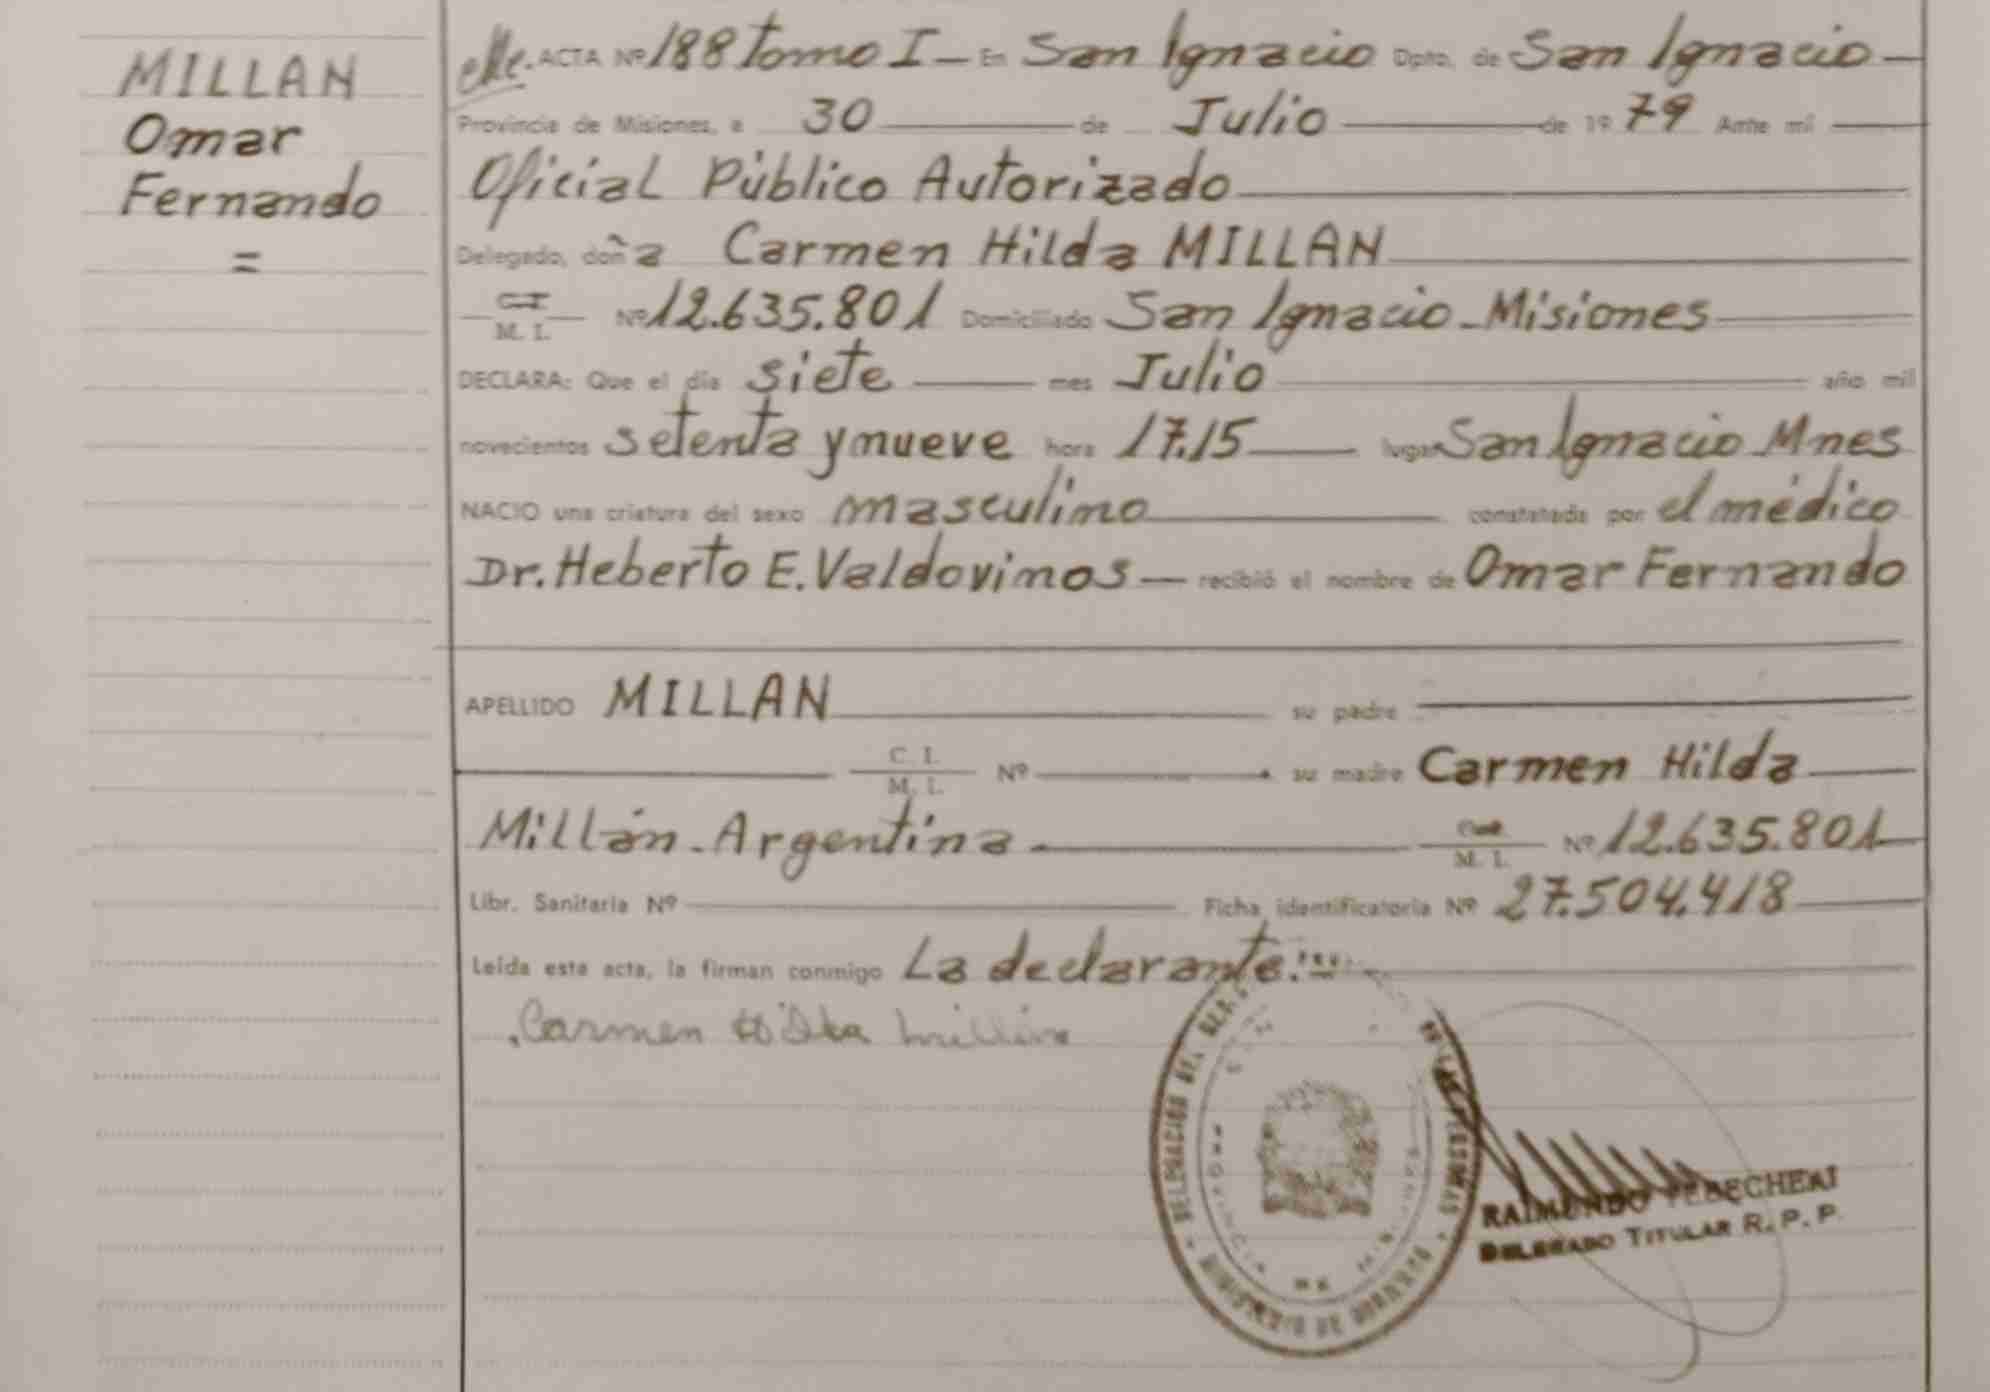 MILLAN
Omar
Fernando
=
ACTA Nº 188 tomo I — En San Ignacio Dpto. de San Ignacio —
Provincia de Misiones, a 30 — de Julio — de 1979 Ante mí —
Oficial Público Autorizado —
Delegado, doña Carmen Hilda MILLAN —
C. I.
M. I. Nº 12.635.801 Domiciliado San Ignacio - Misiones —
DECLARA: Que el día siete — mes Julio — año mil
novecientos setenta y nueve hora 17.15 — lugar San Ignacio Mnes
NACIO una criatura del sexo masculino — constatada por el médico
Dr. Heberto E. Valdovinos — recibió el nombre de Omar Fernando
APELLIDO MILLAN — su padre —
— C. I.
M. I. Nº — su madre Carmen Hilda —
Millán - Argentina — M. I. Nº 12.635.801 —
Libr. Sanitaria Nº — Ficha identificatoria Nº 27.504.418 —
Leída esta acta, la firman conmigo La declarante. —
Carmen Hilda Millán
DELEGACION DEL DE LAS PERSONAS
PROVINCIA DE MISIONES
MINISTERIO DE GOBIERNO
RAIMUNDO
DELEGADO TITULAR R. P. P.